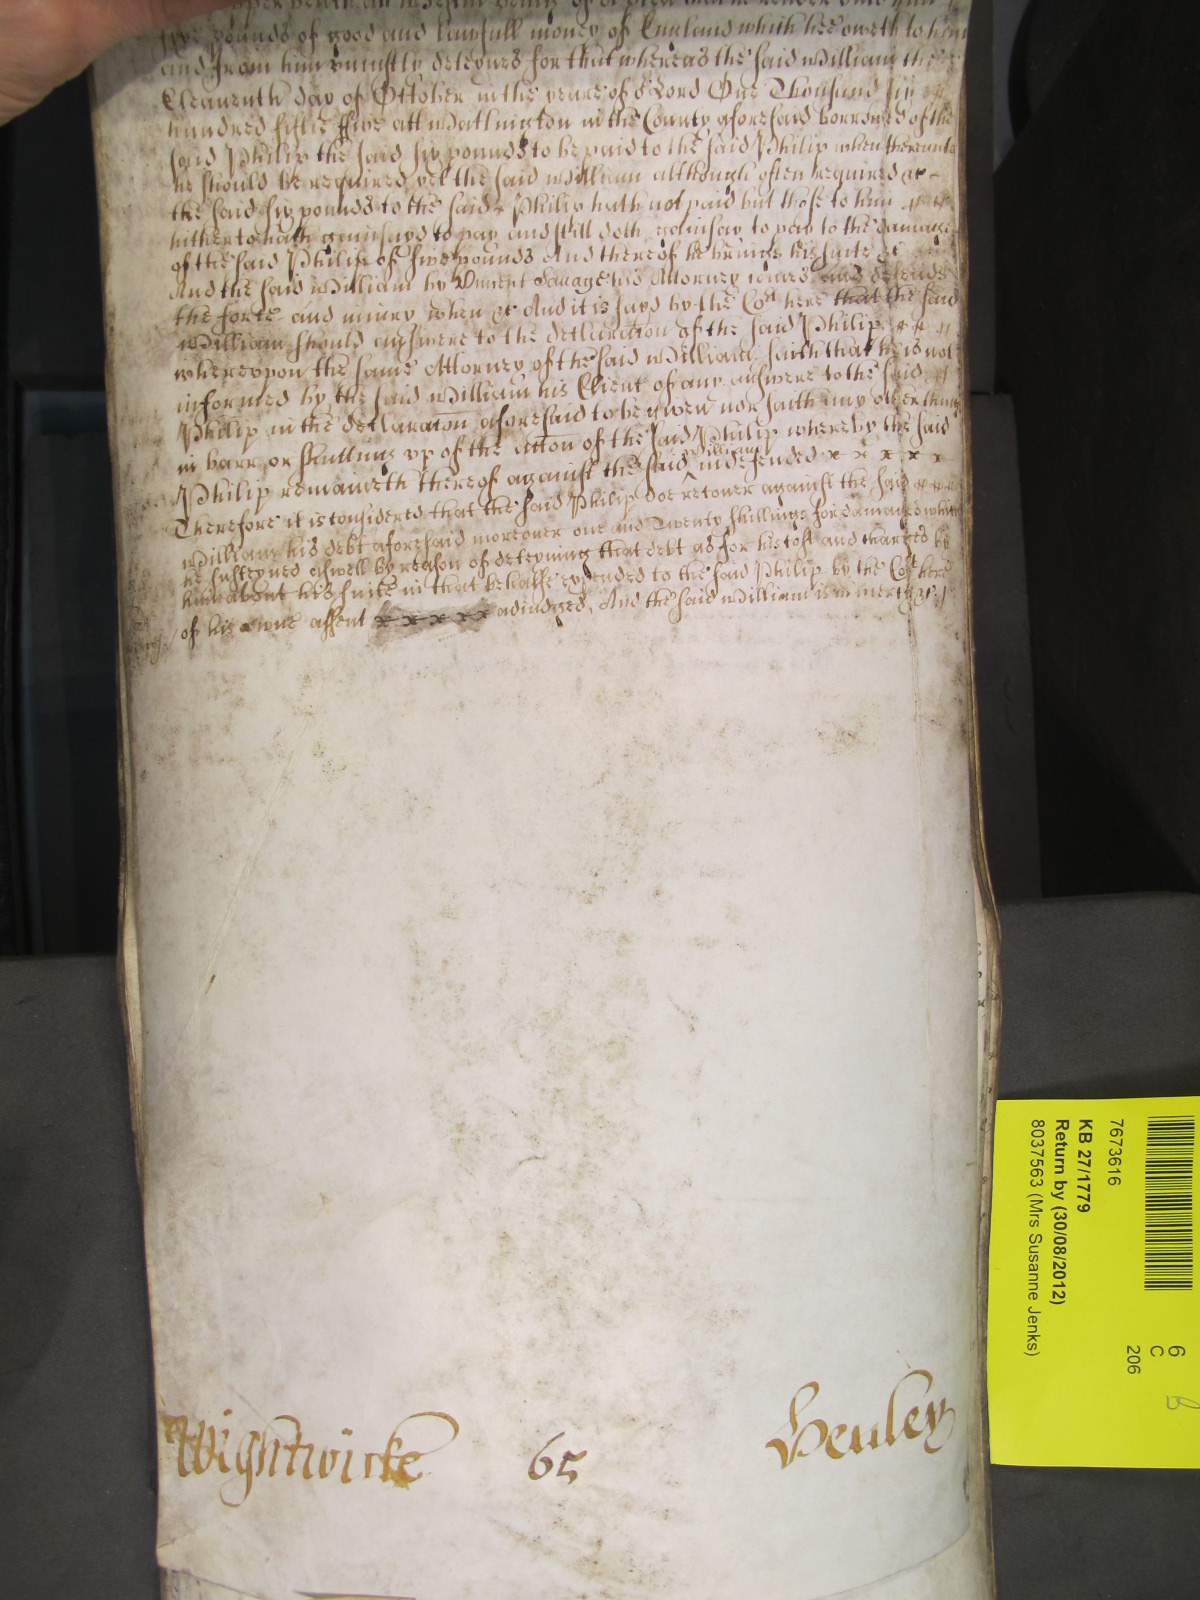 six pounds of good and lawfull money of England which hee oweth to him
and from him uniustly deteynes for that whereas the said William the
Eleaventh day of October in the yeare of o Lord One Thousand six
hundred fiftie ffive att Watlington in the County aforesaid borrowed of the
said Philip the said six pounds to be paid to the said Philip when thereunto
he should be required yet the said William although often required &c
the said six pounds to the said Philip hath not paid but those to him
hitherto hath gainsayd to pay and still doth gainsay to pay to the damage
of the said Philip of five pounds And thereof he brings his suite &c
And the said William by Vincent Savage his Attorney comes and defends
the force and iniury when &c And it is sayd by the Cort here that the said
William should answere to the declaration of the said Philip
whereupon the same Attorney of the said William saith that he is not
informed by the said William his Client of any answere to the said
Philip in the declaracon aforesaid to be given nor saith any other thing
in barr or of the accon of the said Philip whereby the said
Philip remaineth thereof against the said William indefended x x x x x
Therefore it is considered that the said Philip doe recover against the said
William his debt aforesaid moreover one and Twenty shillings for damages which
he susteyned aswell by reason of deteyning that debt as for his cost and charges by
him about his suite in that behalfe expended to the said Philip by the Cort here
of his owne assent x x x x x adiudged, And the said William is in mercy &c
Wightwicke 65 Henley
7673616
KB 27/1779
Return by (30/08/2012)
8037563 (Mrs Susanne Jenks)
6
C
206